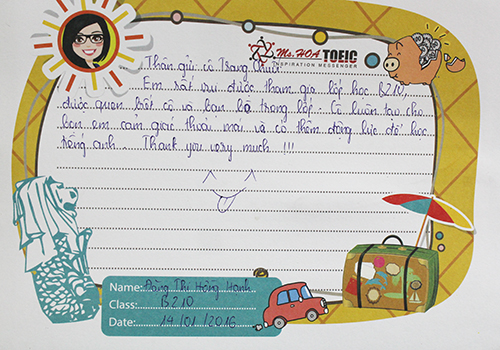 Ms. HOA TOEIC
INSPIRATION MESSENGER
Thân gửi cô Trang
Em rất vui được tham gia lớp học B210,
được quen biết cô và bạn bè trong lớp. Cô luôn tạo cho
bọn em cảm giác thoải mái và có thêm động lực để học
tiếng anh. Thank you very much !!!
Name: Đồng Thị Hồng Hạnh
Class: B210
Date: 14/01/2016